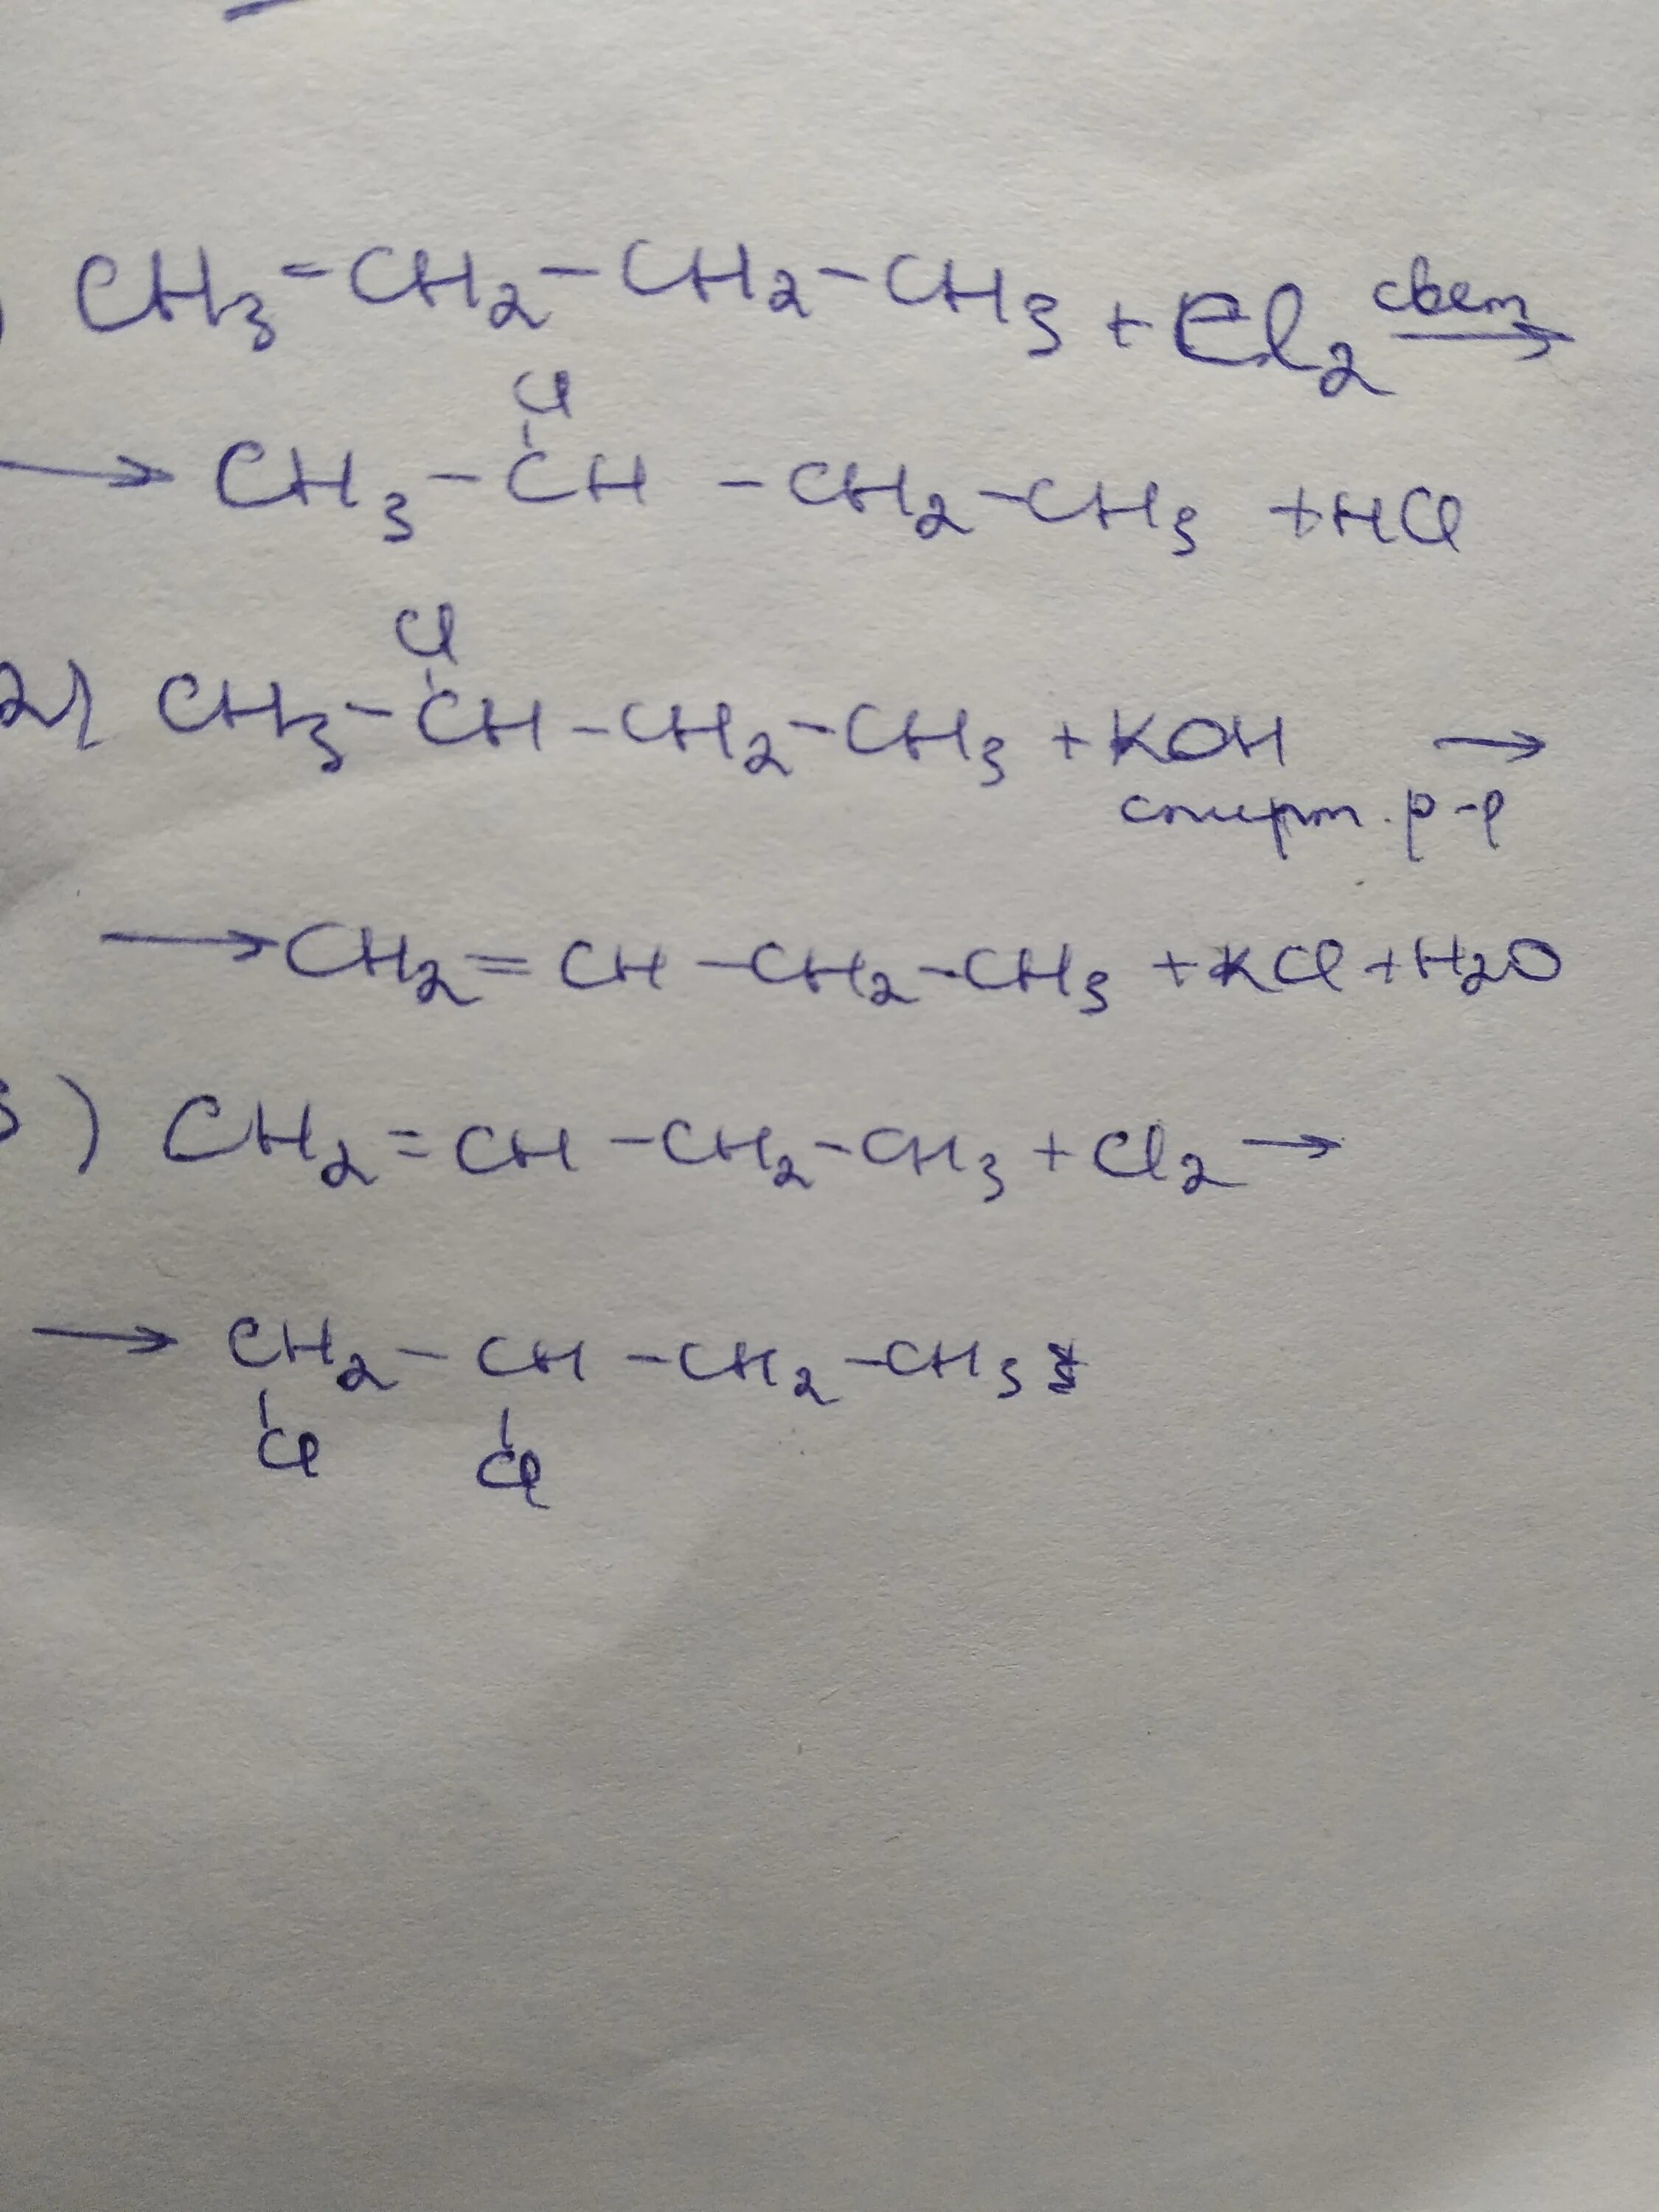 ) CH₃-CH₂-CH₂-CH₃+Cl₂ свет→
Cl
→ CH₃-CH-CH₂-CH₃ +HCl
Cl
2) CH₃-CH-CH₂-CH₃+KOH →
спирт. р-р
→CH₂=CH-CH₂-CH₃+KCl+H₂O
3) CH₂=CH-CH₂-CH₃+Cl₂→
→ CH₂-CH-CH₂-CH₃
Cl Cl